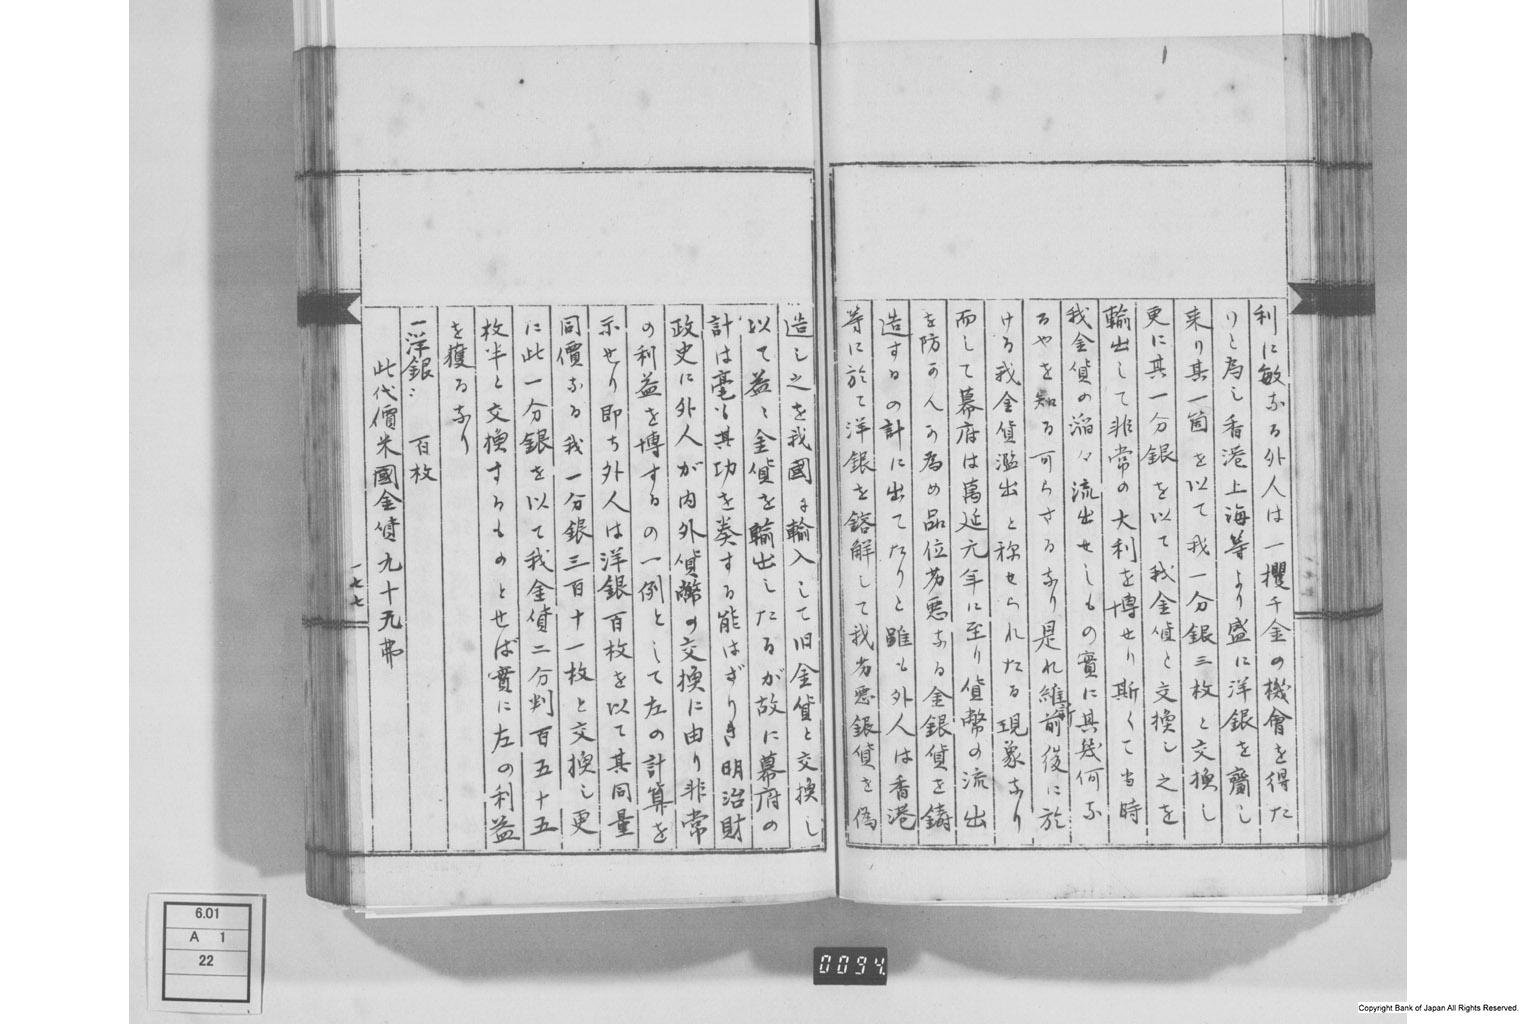 利に敏なる外人は一攫千金の機會を得た
りと為し香港上海等より盛に洋銀を齎し
来り其一箇を以て我一分銀三枚と交換し
更に其一分銀を以て我金貨と交換し之を
輸出して非常の大利を博せり斯くて当時
我金貨の滔々流出せしもの實に其幾何な
るやを知る可らざるなり是れ維新前後に於
ける我金貨濫出と称せられたる現象なり
而して幕府は萬延元年に至り貨幣の流出
を防がんが為め品位劣悪なる金銀貨を鋳
造するの計に出てたりと雖も外人は香港
等に於て洋銀を鎔解して我劣悪銀貨を偽
造し之を我國に輸入して旧金貨と交換し
以て益々金貨を輸出したるが故に幕府の
計は毫も其功を奏する能はざりき明治財
政史に外人が内外貨幣の交換に由り非常
の利益を博するの一例として左の計算を
示せり即ち外人は洋銀百枚を以て其同量
同價なる我一分銀三百十一枚と交換し更
に此一分銀を以て我金貨二分判百五十五
枚半と交換するものとせば實に左の利益
を獲るなり
一洋銀 百枚
此代價米國金貨九十九弗
一七七
6.01
A 1
22
0094
Copyright Bank of Japan All Rights Reserved.